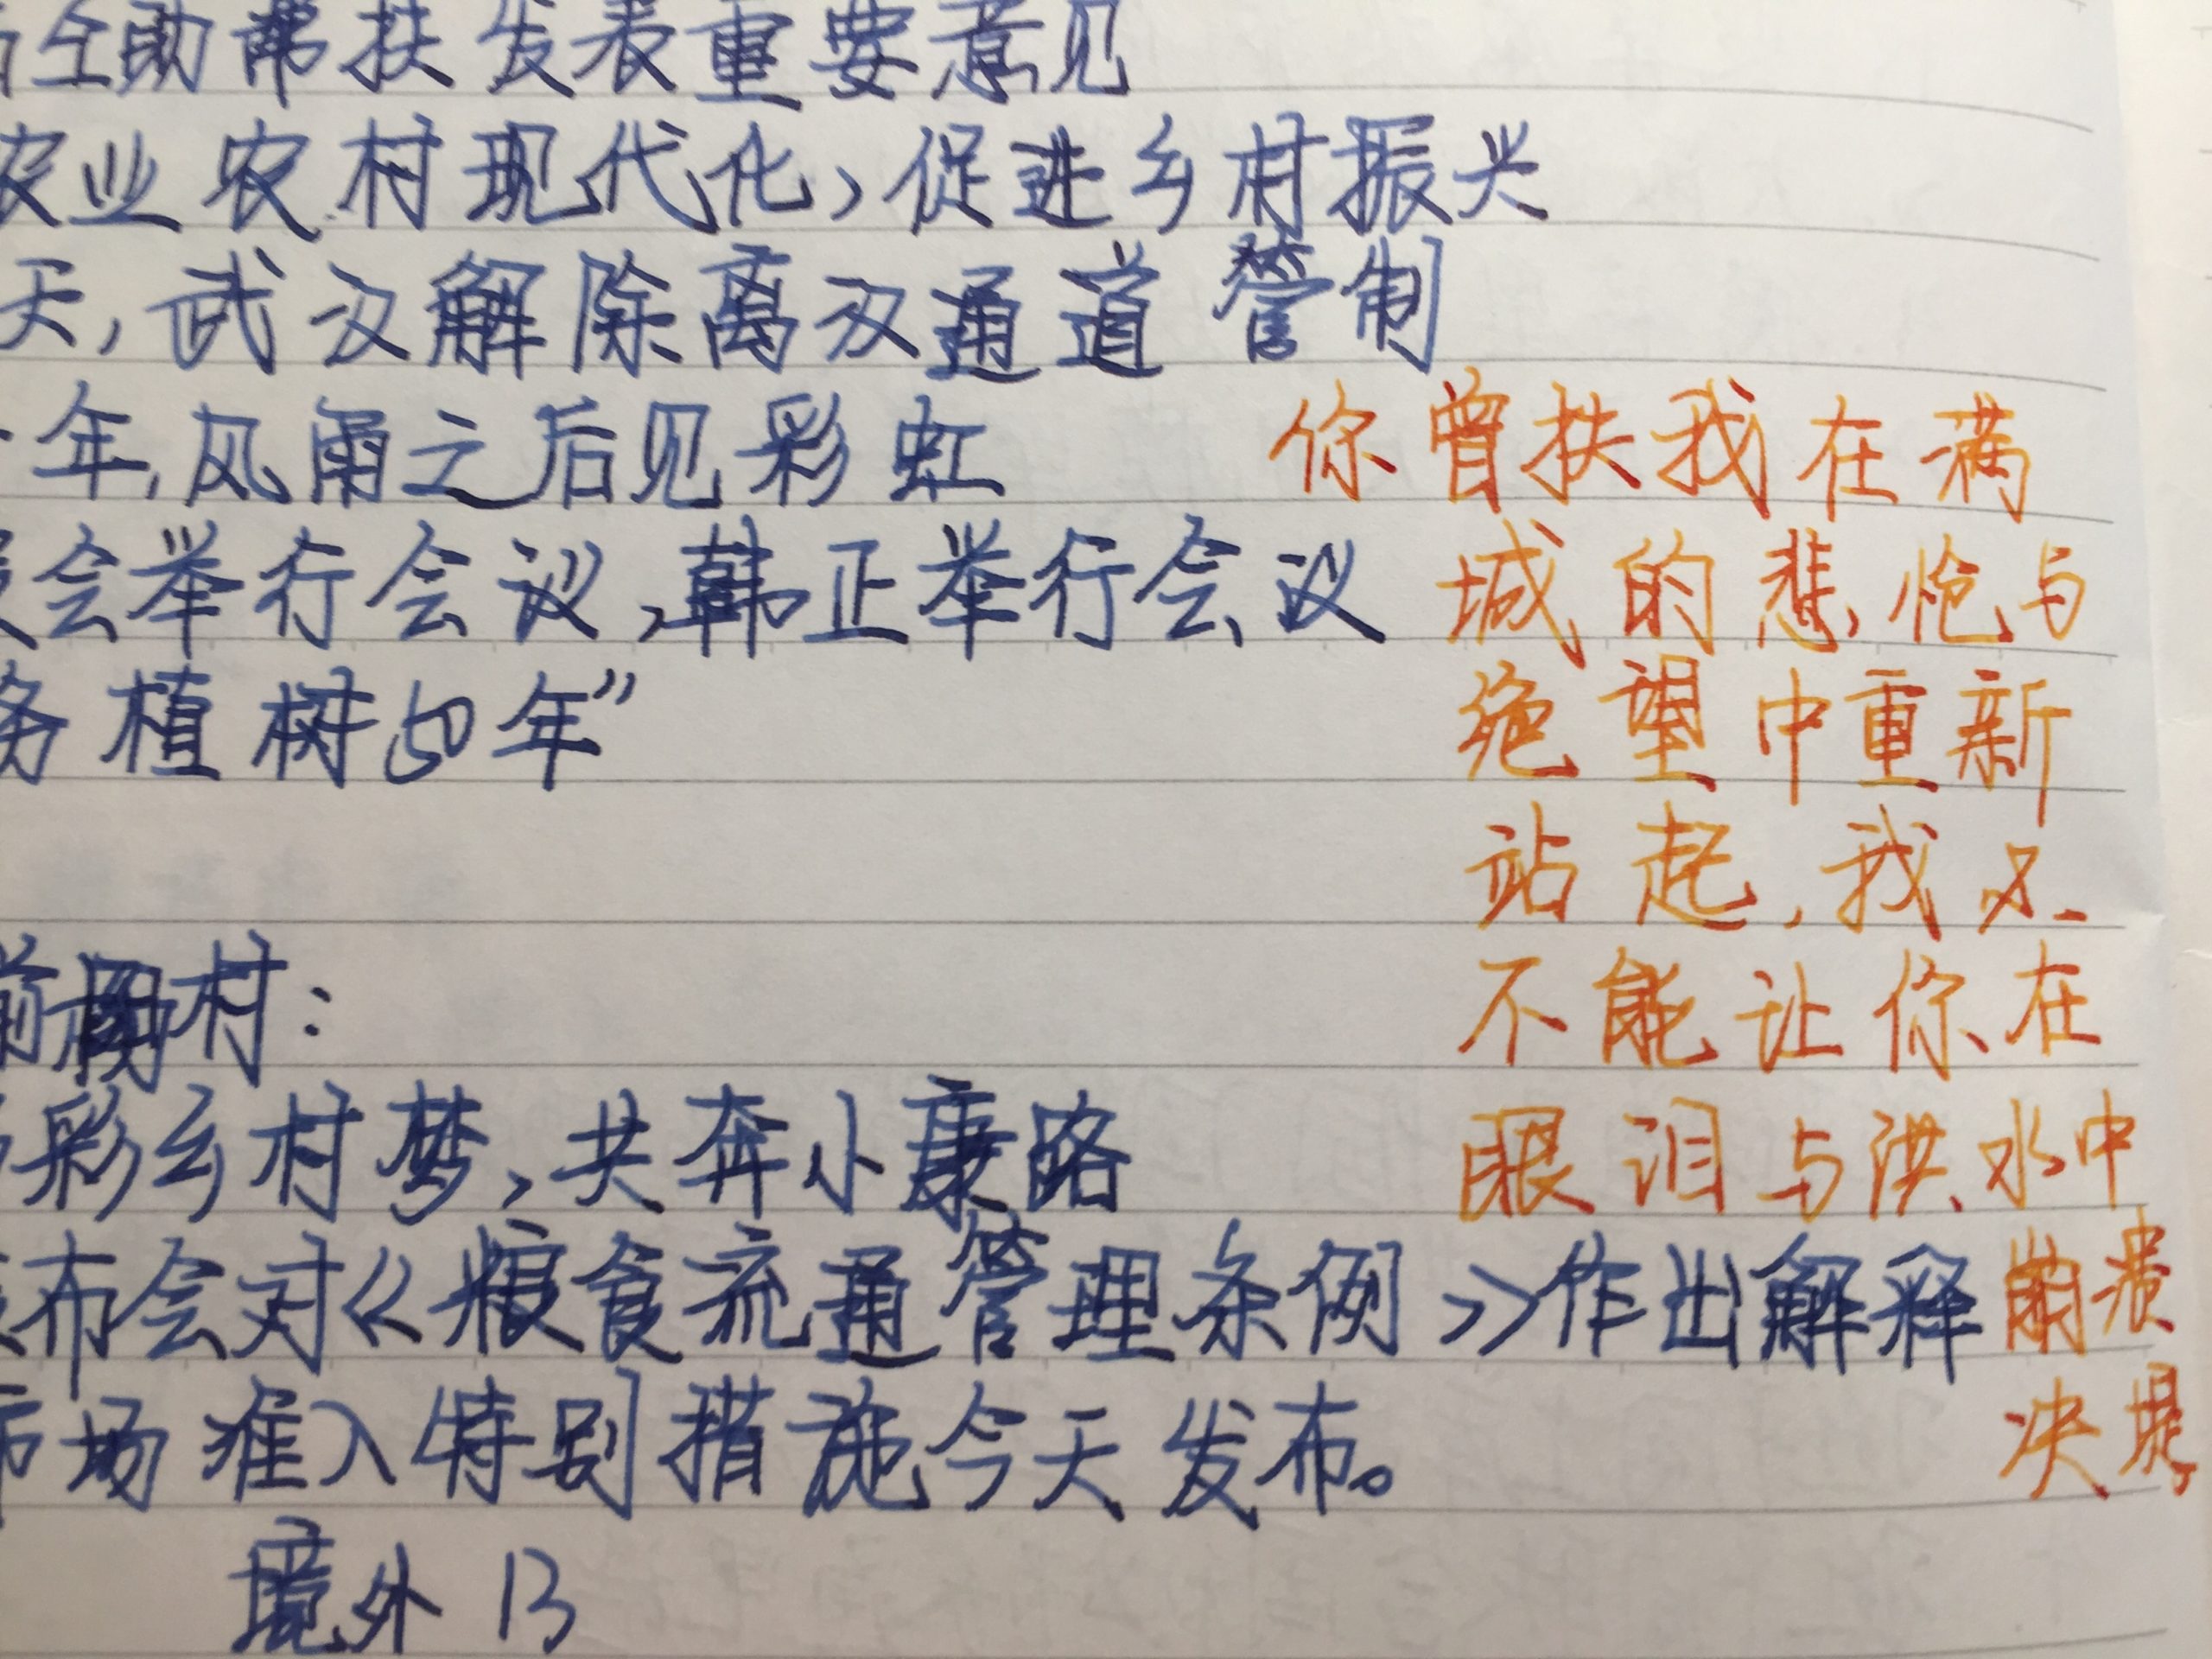 互助帮扶发表重要意见
农业农村现代化，促进乡村振兴
天，武汉解除离汉通道管制
年，风雨之后见彩虹
会举行会议，韩正举行会议
务植树50年”
前村：
彩乡村梦，共奔小康路
布会对《粮食流通管理条例》作出解释
市场准入特别措施今天发布。
境外 13
你曾扶我在满
城的悲怆与
绝望中重新
站起，我又
不能让你在
眼泪与洪水中
崩溃
决堤，